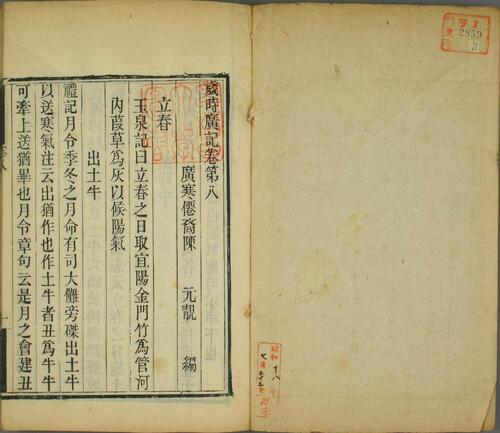 ヲ1
2859
3
昭和十八
歲時廣記卷第八
廣寒僊裔陳 元靚 編
立春
玉泉記曰立春之日取宜陽金門竹爲管河
內葭草爲灰以候陽氣
出土牛
禮記月令季冬之月命有司大儺旁磔出土牛
以送寒氣注云出猶作也作土牛者丑爲牛牛
可牽上送猶畢也月令章句云是月之會建丑